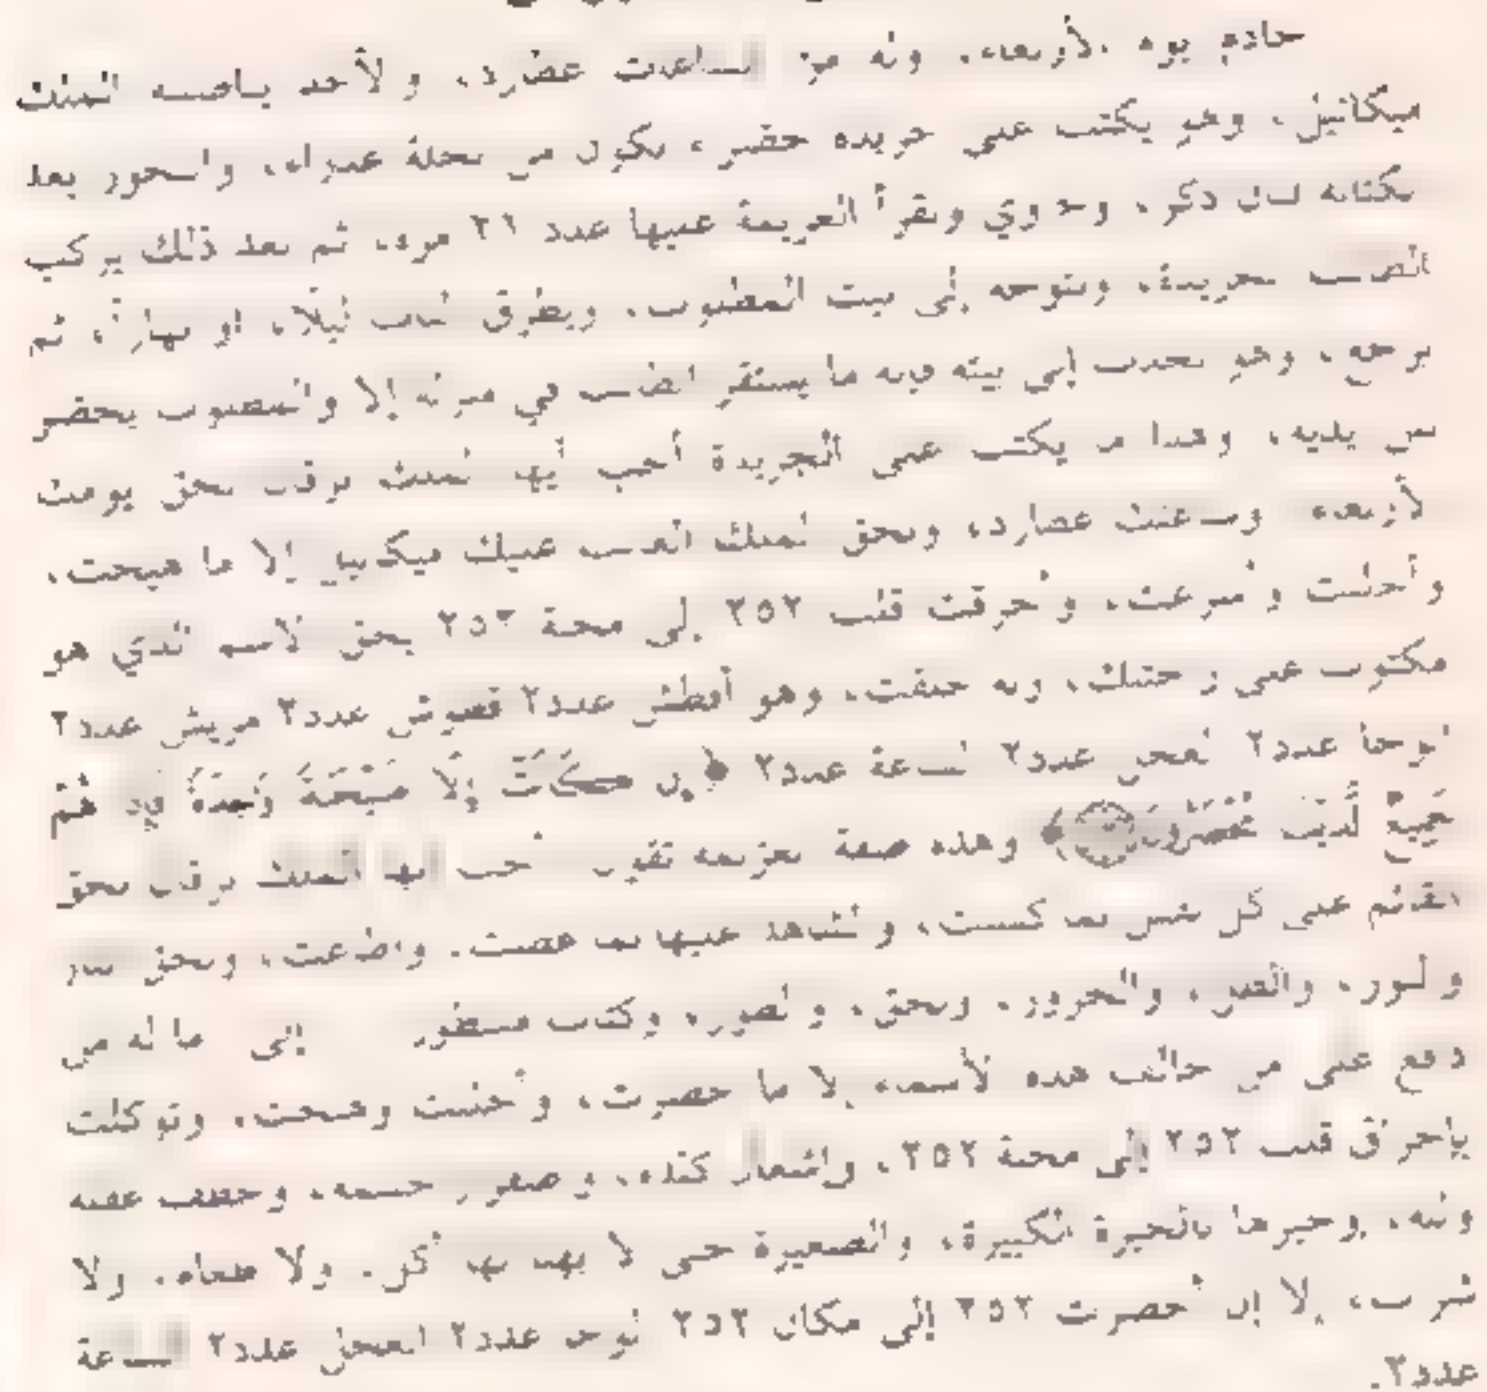 خادم يوم الأربعاء، وله من الساعات عطارد، والأخذ بناصيته الملك
ميكائيل، وهو يكتب على جريدة خضر، يكون من نخلة عذراء، والبخور بعد
الكتابة لبان ذكر، وجاوي ويقرأ العزيمة عليها عدد ٢١ مرة، ثم بعد ذلك يركب
الطالب الجريدة، ويتوجه إلى بيت المطلوب، ويطرق الباب ليلًا، أو نهارًا، ثم
يرجع، وهو إلى بيته فإنه ما يستقر الطالب في منزله إلا والمطلوب يحضر
بين يديه، وهذا ما يكتب على الجريدة أجب أيها الملك برقان بحق يومك
الأربعاء وساعتك عطارد، وبحق الملك الغالب عليك ميكائيل إلا ما هيجت،
وأجلبت وأسرعت، وأحرقت قلب ٢٥٢ إلى محبة ٢٥٢ بحق الاسم الذي هو
مكتوب على راحتك، وبه خلقت، وهو عدد٢ عدد٢ عدد٢
الوحا عدد٢ العجل عدد٢ الساعة عدد٢ ﴿إن كَانَتْ إِلَّا صَيْحَةً وَاحِدَةً فَإِذَا هُمْ
جَمِيعٌ لَّدَيْنَا مُحْضَرُونَ﴾ وهذه صفة العزيمة تقول أجب أيها الملك برقان بحق
القائم على كل نفس بما كسبت، والشاهد عليها بما عصت، وأطاعت، وبحق
والنور، والظل، والحرور، وبحق، والطور، وكتاب مسطور إلى ما له من
دافع على من خالف هذه الأسماء إلا ما حضرت، وأجلبت وهيجت، وتوكلت
بإحراق قلب ٢٥٢ إلى محبة ٢٥٢، وإشعال كبده، جسمه، وخطف عقله
ولبه، وحيرها بالحيرة الكبيرة، والصغيرة حتى لا يهنأ بها أكل، ولا طعام، ولا
شراب، إلا إن أحضرت ٢٥٢ إلى مكان ٢٥٢ الوحا عدد٢ العجل عدد٢ الساعة
عدد٢.